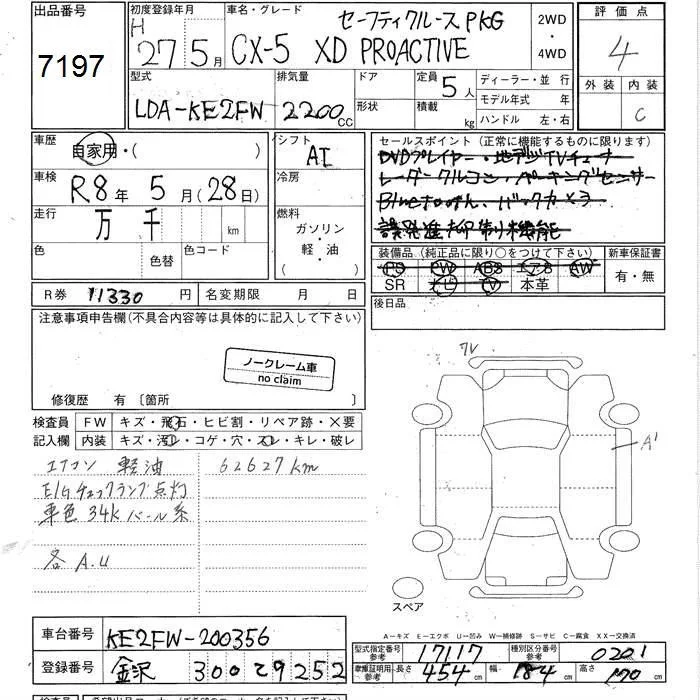 出品番号
7197
初度登録年月
H 27 5月
車名・グレード
セーフティクルーズPKG
CX-5 XD PROACTIVE
2WD
・
4WD
評価点
4
外装 内装
C
型式
LDA-KE2FW
排気量
2200cc
ドア
形状
定員 5人
積載 kg
ディーラー・並行
モデル年式 年
ハンドル 左・右
車歴
自家用・( )
シフト
AT
車検
R8年 5月(28日)
冷房
走行
万 千 km
燃料
ガソリン
・
軽・油
( )
色 色替 色コード
R券 11330円 名変期限 月 日
セールスポイント(正常に機能するものに限ります)
DVDプレイヤー・地デジTVチューナー
レーダークルコン・パーキングセンサー
Bluetooth、バックカメラ
誤発進抑制機能
装備品(純正品に限り○をつけて下さい) 新車保証書
PS PW ABS エアB AW
SR ナビ TV 本革
有・無
後日品
注意事項申告欄(不具合内容等は具体的に記入して下さい)
ノークレーム車
no claim
修復歴 有〔箇所 〕
検査員 FW キズ・飛石・ヒビ割・リペア跡・X要
記入欄 内装 キズ・汚レ・コゲ・穴・スレ・キレ・破レ
エアコン 軽油 62627km
E/Gチェックランプ点灯
車色34K パール系
各A.U
フレ
A1
スペア
A－キズ E－エクボ U－凹み W－補修跡 S－サビ C－腐食 XX－交換済
車台番号 KE2FW-200356
登録番号 金沢 300 29252
型式指定番号 参考 17117 種別区分番号 参考 0201
車庫証明用 参考 長さ 454cm 幅 184cm 高さ 170cm